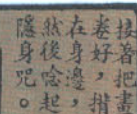 接著把畫
卷好，揩
在身邊，
然後唸起
隱身咒。